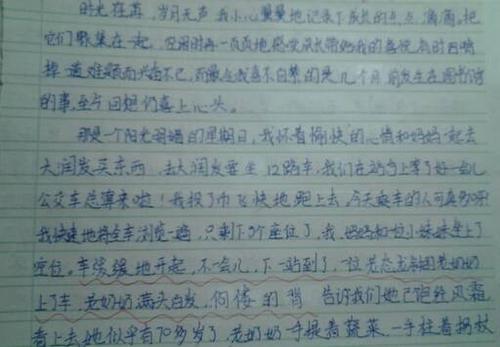 时光荏苒,岁月无声,我小心翼翼地记录下成长的点点滴滴,把
它们聚集在一起,空闲时再一页页地感受成长带给我的喜悦,有时因啃
掉一道难题而兴奋不已,而最令我喜不自禁的是几个月前发生在图书馆
的事,至今回想仍喜上心头。
那是一个阳光明媚的星期日,我怀着愉快的心情和妈妈一起去
大润发买东西,去大润发要坐12路车,我们在站台上等了好一会儿
公交车总算来啦!我投了币飞快地跑上去,今天乘车的人可真多呀
我快速地将全车浏览一遍,只剩下3个座位了,我、妈妈和一位小妹妹坐上了
座位。车缓缓地开起,不一会儿,下一站到了,一位老态龙钟的老奶奶
上了车,老奶奶满头白发,佝偻的背 告诉我们她已饱经风霜
看上去她似乎有70多岁了,老奶奶一手提着蔬菜,一手拄着拐杖